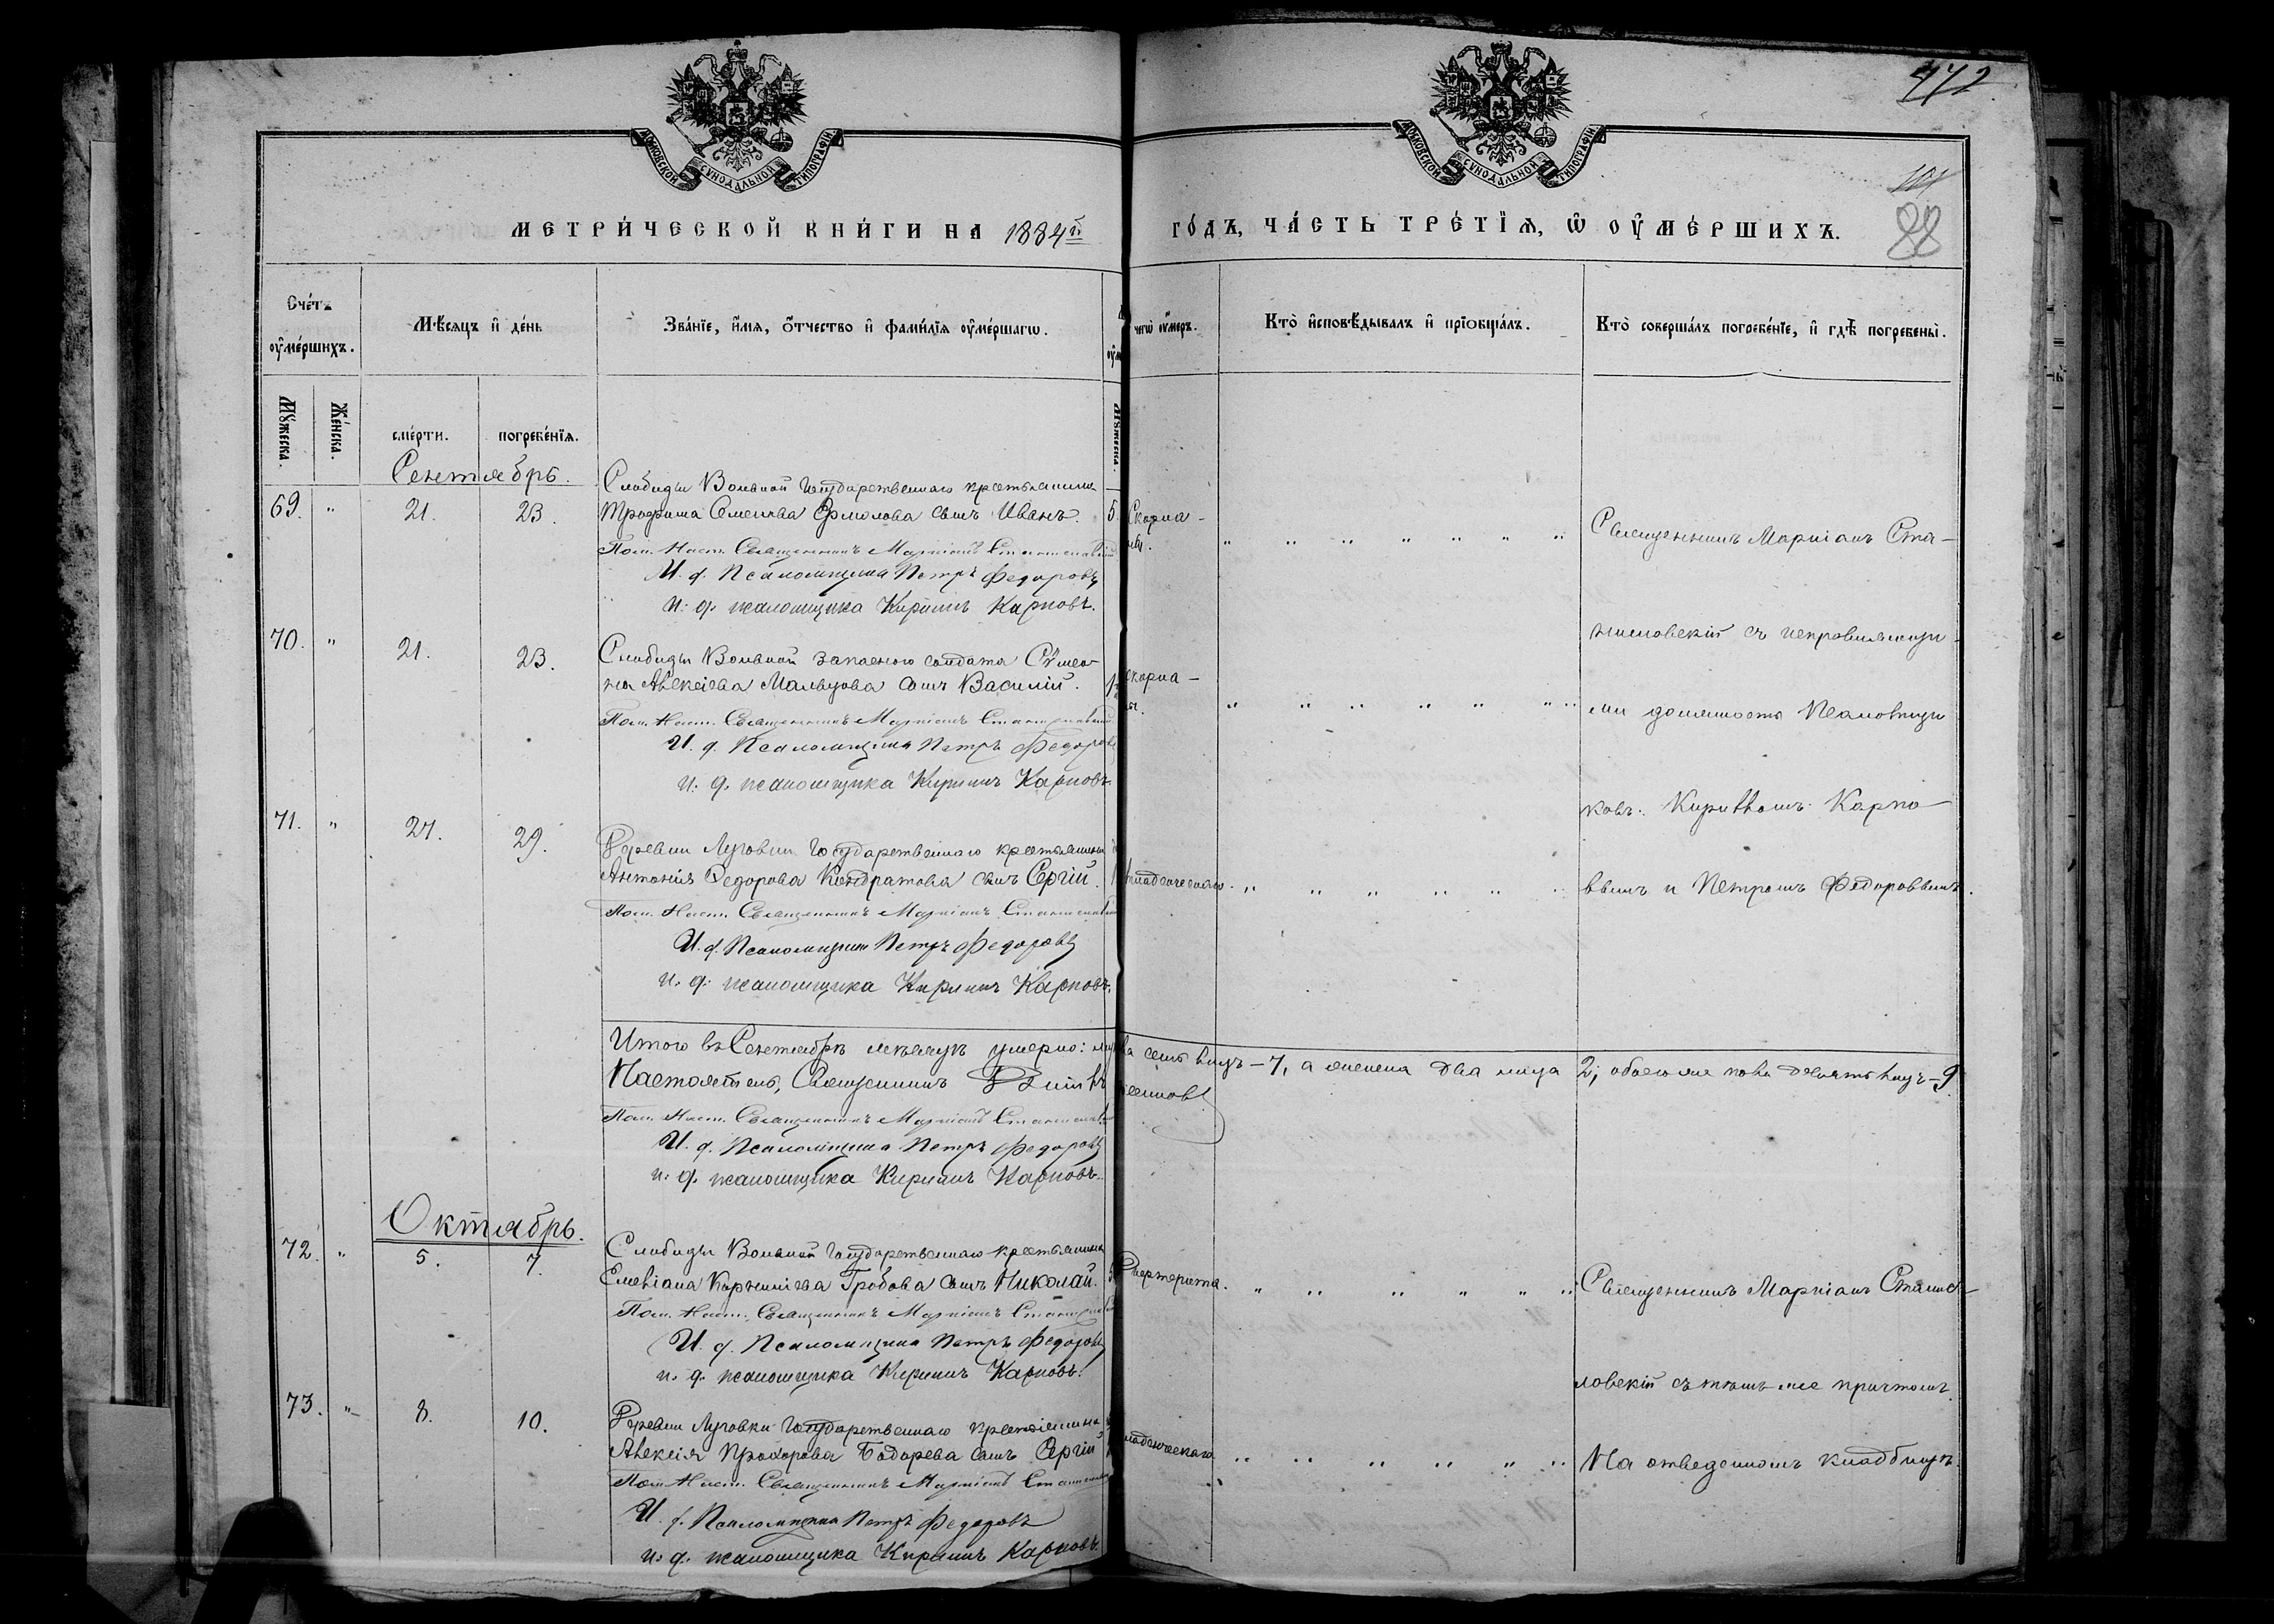 442
101
88
МОСКОВСКОЙ СУНОДАЛЬНОЙ ТИПОГРАФІИ
МОСКОВСКОЙ СУНОДАЛЬНОЙ ТИПОГРАФІИ
МЕТРИ́ЧЕСКОЙ КНИ́ГИ НА 1884й ГО́ДЪ, ЧА́СТЬ ТРЕ́ТЇѦ, Ѡ ОУ҆МЕ́РШИХЪ.
Сче́тъ оу҆ме́ршихъ.
Мѣ́сяцъ и҆ де́нь
Зва́нїе, и҆́мя, ѻ҆́тчество и҆ фами́лїя оу҆ме́ршагѡ.
чегѡ̀ оу҆́меръ.
Кто̀ и҆сповѣ́дывалъ и҆ прїѡбща́лъ.
Кто̀ соверша́лъ погребе́нїе, и҆ гдѣ̀ погребены̀.
Мꙋ́жеска.
Же́нска.
сме́рти.
погребе́нїѧ.
Мꙋ́жеска.
Сентябрь.
Слободы Вольной Государственнаго крестьянина
69. " 21. 23. Трофима Семенова Ермолова сынъ Иванъ. 5 Скарла-
Пом. Наст. Священникъ Маркіанъ Станиславскій
И. д. Псаломщика Петръ Федоровъ
и. д. псаломщика Кириллъ Карповъ.
Священникъ Маркіанъ Ста-
70. " 21. 23. Слободы Вольной запаснаго солдата Сѵмео-
на Алексіева Мальцова сынъ Василій. скарла-
Пом. Наст. Священникъ Маркіанъ Станиславскій
И. д. Псаломщика Петръ Федоровъ
и. д. псаломщика Кириллъ Карповъ.
ниславскій съ исправляющи-
ми должность Псаломщи
ковъ: Кирилломъ Карпо-
71. " 27. 29. Деревни Луговки Государственнаго крестьянина
Антонія Федорова Кондратова сынъ Сергій. младенческаго.
Пом. Наст. Священникъ Маркіанъ Станиславскій
И. д. Псаломщика Петръ Федоровъ
и. д. псаломщика Кириллъ Карповъ.
вымъ и Петромъ Федоровымъ.
Итого въ Сентябрѣ мѣсяцѣ умерло: семь лицъ - 7, а женска два лица 2; обоего же пола девять лицъ - 9
Настоятель, Священникъ
Пом. Наст. Священникъ Маркіанъ Станиславскій
И. д. Псаломщика Петръ Федоровъ
и. д. псаломщика Кириллъ Карповъ.
Октябрь.
72. " 5. 7. Слободы Вольной Государственнаго крестьянина
Емеліана Корниліева Гробова сынъ Николай.
Пом. Наст. Священникъ Маркіанъ Станиславскій
И. д. Псаломщика Петръ Федоровъ
и. д. псаломщика Кириллъ Карповъ.
Священникъ Маркіанъ Станис-
лавскій съ тѣмъ же причтомъ
73. " 8. 10. Деревни Луговки Государственнаго крестьянина
Алексія Прохорова Бодарева сынъ Сергій младенческаго
Пом. Наст. Священникъ Маркіанъ Станиславскій
И. д. Псаломщика Петръ Федоровъ
и. д. псаломщика Кириллъ Карповъ.
На отведенномъ кладбищѣ.